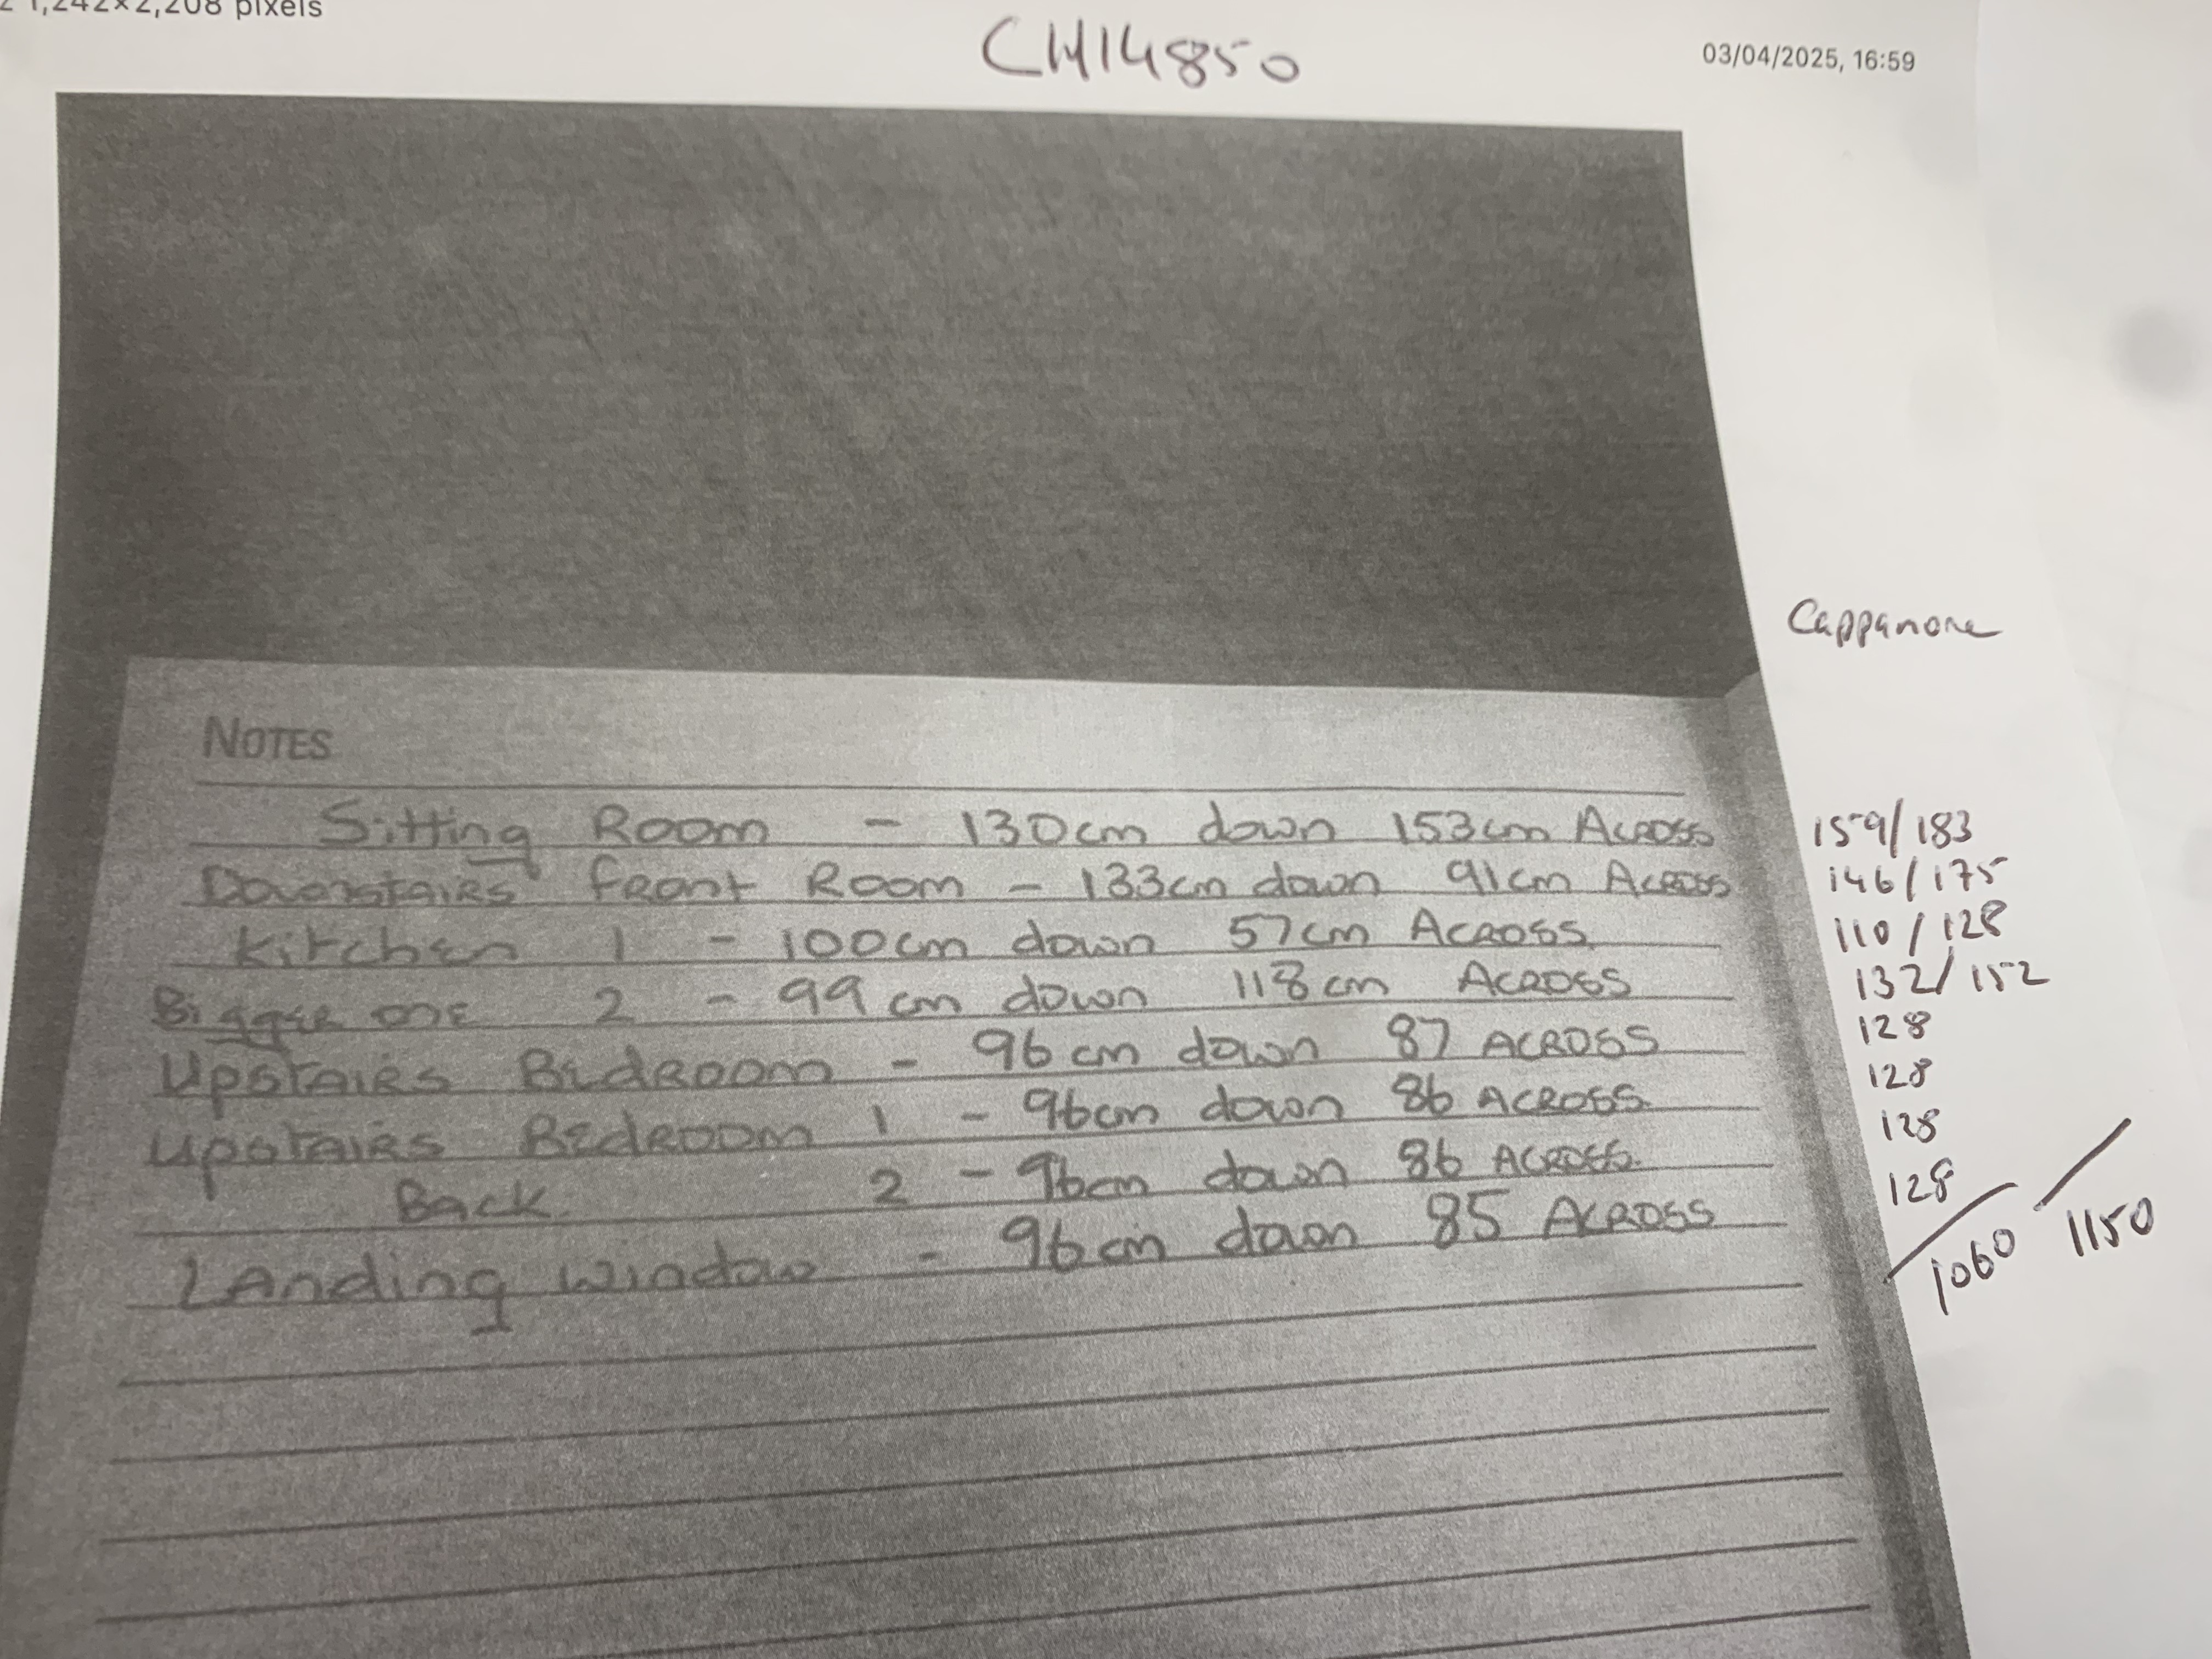 1,242×2,208 pixels
CH14850
03/04/2025, 16:59
Cappamore
NOTES
Sitting Room - 130cm down 153cm Across 159/183
Downstairs front Room - 133cm down 91cm Across 146/175
Kitchen 1 - 100cm down 57cm Across 110/128
Bigger one 2 - 99cm down 118cm Across 132/152
Upstairs Bedroom - 96cm down 87 Across 128
Upstairs Bedroom 1 - 96cm down 86 Across 128
Back 2 - 96cm down 86 Across 128
Landing window - 96cm down 85 Across 128
1060 1150